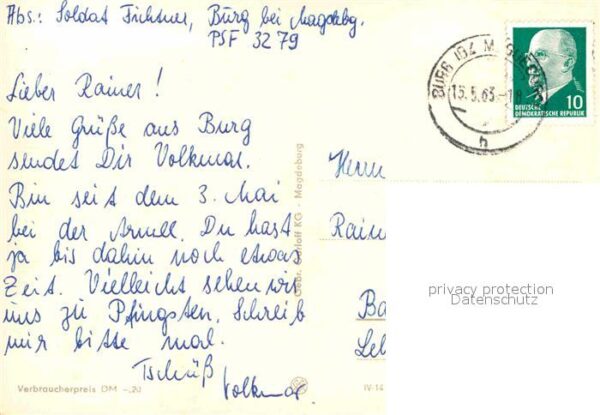 Abs.: Soldat Fichtner, Burg bei Magdebg.
PSF 3279
Lieber Rainer!
Viele Grüße aus Burg
sendet Dir Volkmar.
Bin seit dem 3. Mai
bei der Armee. Du hast
ja bis dahin noch etwas
Zeit. Vielleicht sehen wir
uns zu Pfingsten. Schreib
mir bitte mal.
Tschüß
Volkmar
Verbraucherpreis DM -,20
KG - Magdeburg
IV-14
BURG (BZ MAGDEBURG)
15.5.63.-18
h
10
DEUTSCHE
DEMOKRATISCHE REPUBLIK
Herrn
Rain
privacy protection
Datenschutz
Ba